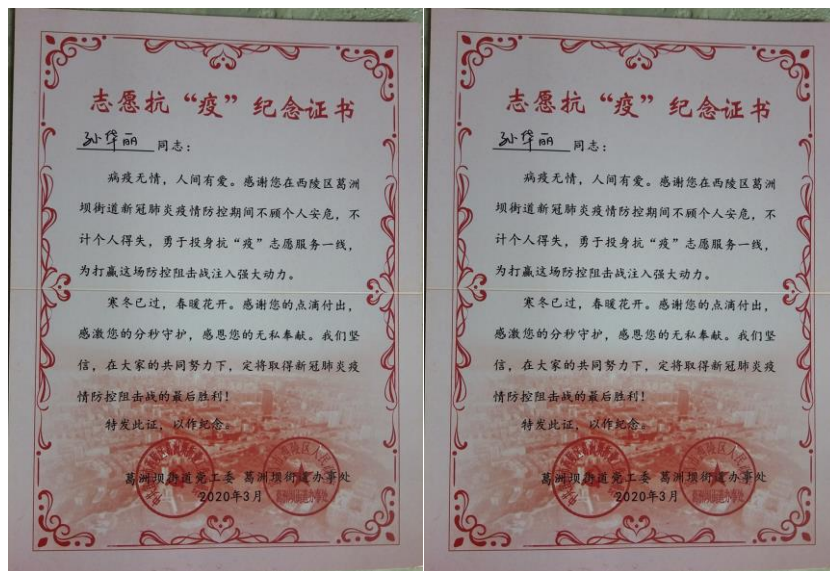 志愿抗“疫”纪念证书
孙华丽 同志：
病疫无情，人间有爱。感谢您在西陵区葛洲
坝街道新冠肺炎疫情防控期间不顾个人安危，不
计个人得失，勇于投身抗“疫”志愿服务一线，
为打赢这场防控阻击战注入强大动力。
寒冬已过，春暖花开。感谢您的点滴付出，
感激您的分秒守护，感恩您的无私奉献。我们坚
信，在大家的共同努力下，定将取得新冠肺炎疫
情防控阻击战的最后胜利！
特发此证，以作纪念。
葛洲坝街道党工委 葛洲坝街道办事处
2020年3月
志愿抗“疫”纪念证书
孙华丽 同志：
病疫无情，人间有爱。感谢您在西陵区葛洲
坝街道新冠肺炎疫情防控期间不顾个人安危，不
计个人得失，勇于投身抗“疫”志愿服务一线，
为打赢这场防控阻击战注入强大动力。
寒冬已过，春暖花开。感谢您的点滴付出，
感激您的分秒守护，感恩您的无私奉献。我们坚
信，在大家的共同努力下，定将取得新冠肺炎疫
情防控阻击战的最后胜利！
特发此证，以作纪念。
葛洲坝街道党工委 葛洲坝街道办事处
2020年3月